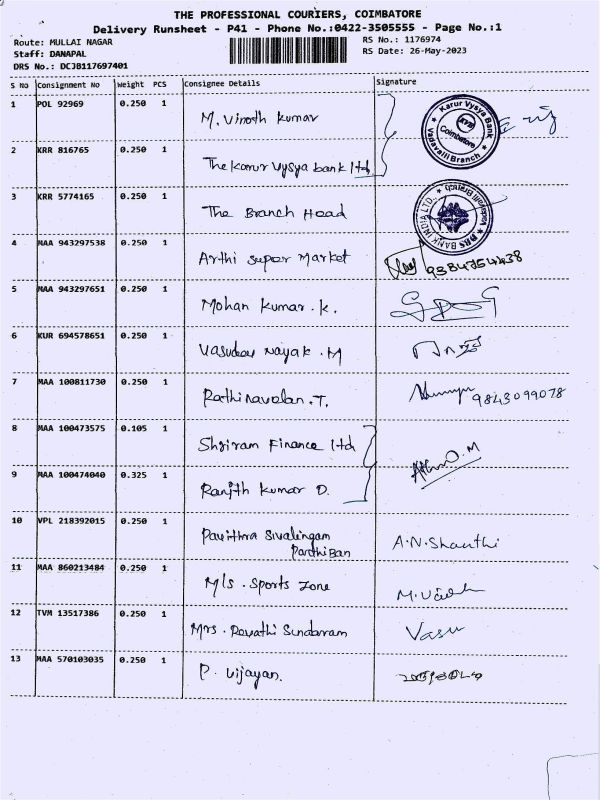 THE PROFESSIONAL COURIERS, COIMBATORE
Delivery Runsheet - P41 - Phone No.:0422-3505555 - Page No.:1
Route: MULLAI NAGAR
Staff: DANAPAL
DRS No.: DCJB117697401
RS No.: 1176974
RS Date: 26-May-2023
S No Consignment No Weight PCS Consignee Details Signature
1 POL 92969 0.250 1 M. Vinoth kumar
Karur Vysya Bank
KVB
Coimbatore
Vadavalli Branch
2 KRR 816765 0.250 1 The Karur Vysya bank ltd
3 KRR 5774165 0.250 1 The Branch Head
BANK INDIA LTD.
Vadavalli Branch
4 MAA 943297538 0.250 1 Arthi super Market
5 MAA 943297651 0.250 1 Mohan Kumar . k.
6 KUR 694578651 0.250 1 Vasudev Nayak . M
7 MAA 100811730 0.250 1 Rathinavelan . T. 9843099078
8 MAA 100473575 0.105 1 Shriram Finance ltd
9 MAA 100474040 0.325 1 Ranjith kumar D.
10 VPL 218392015 0.250 1 Pavithra Sivalingam A.N.Shanthi
Parthiban
11 MAA 860213484 0.250 1 M/s . Sports Zone
12 TVM 13517386 0.250 1 Mrs . Revathi Sundaram Vasu
13 MAA 570103035 0.250 1 P. Vijayan.